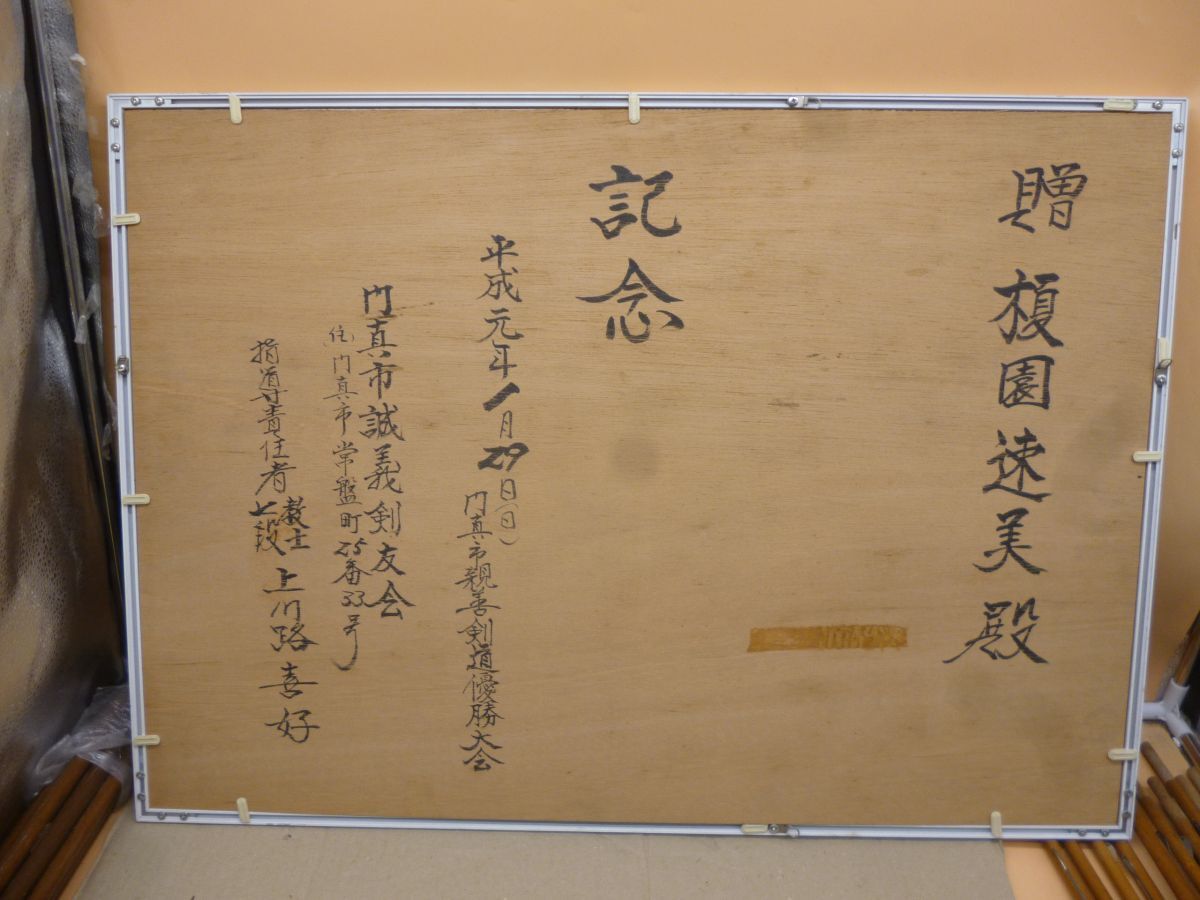 贈 榎園速美殿
記念
平成元年1月29日(日)
門真市親善剣道優勝大会
門真市誠義剣友会
(住)門真市常盤町25番33号
指導責任者 教士七段 上川路喜好